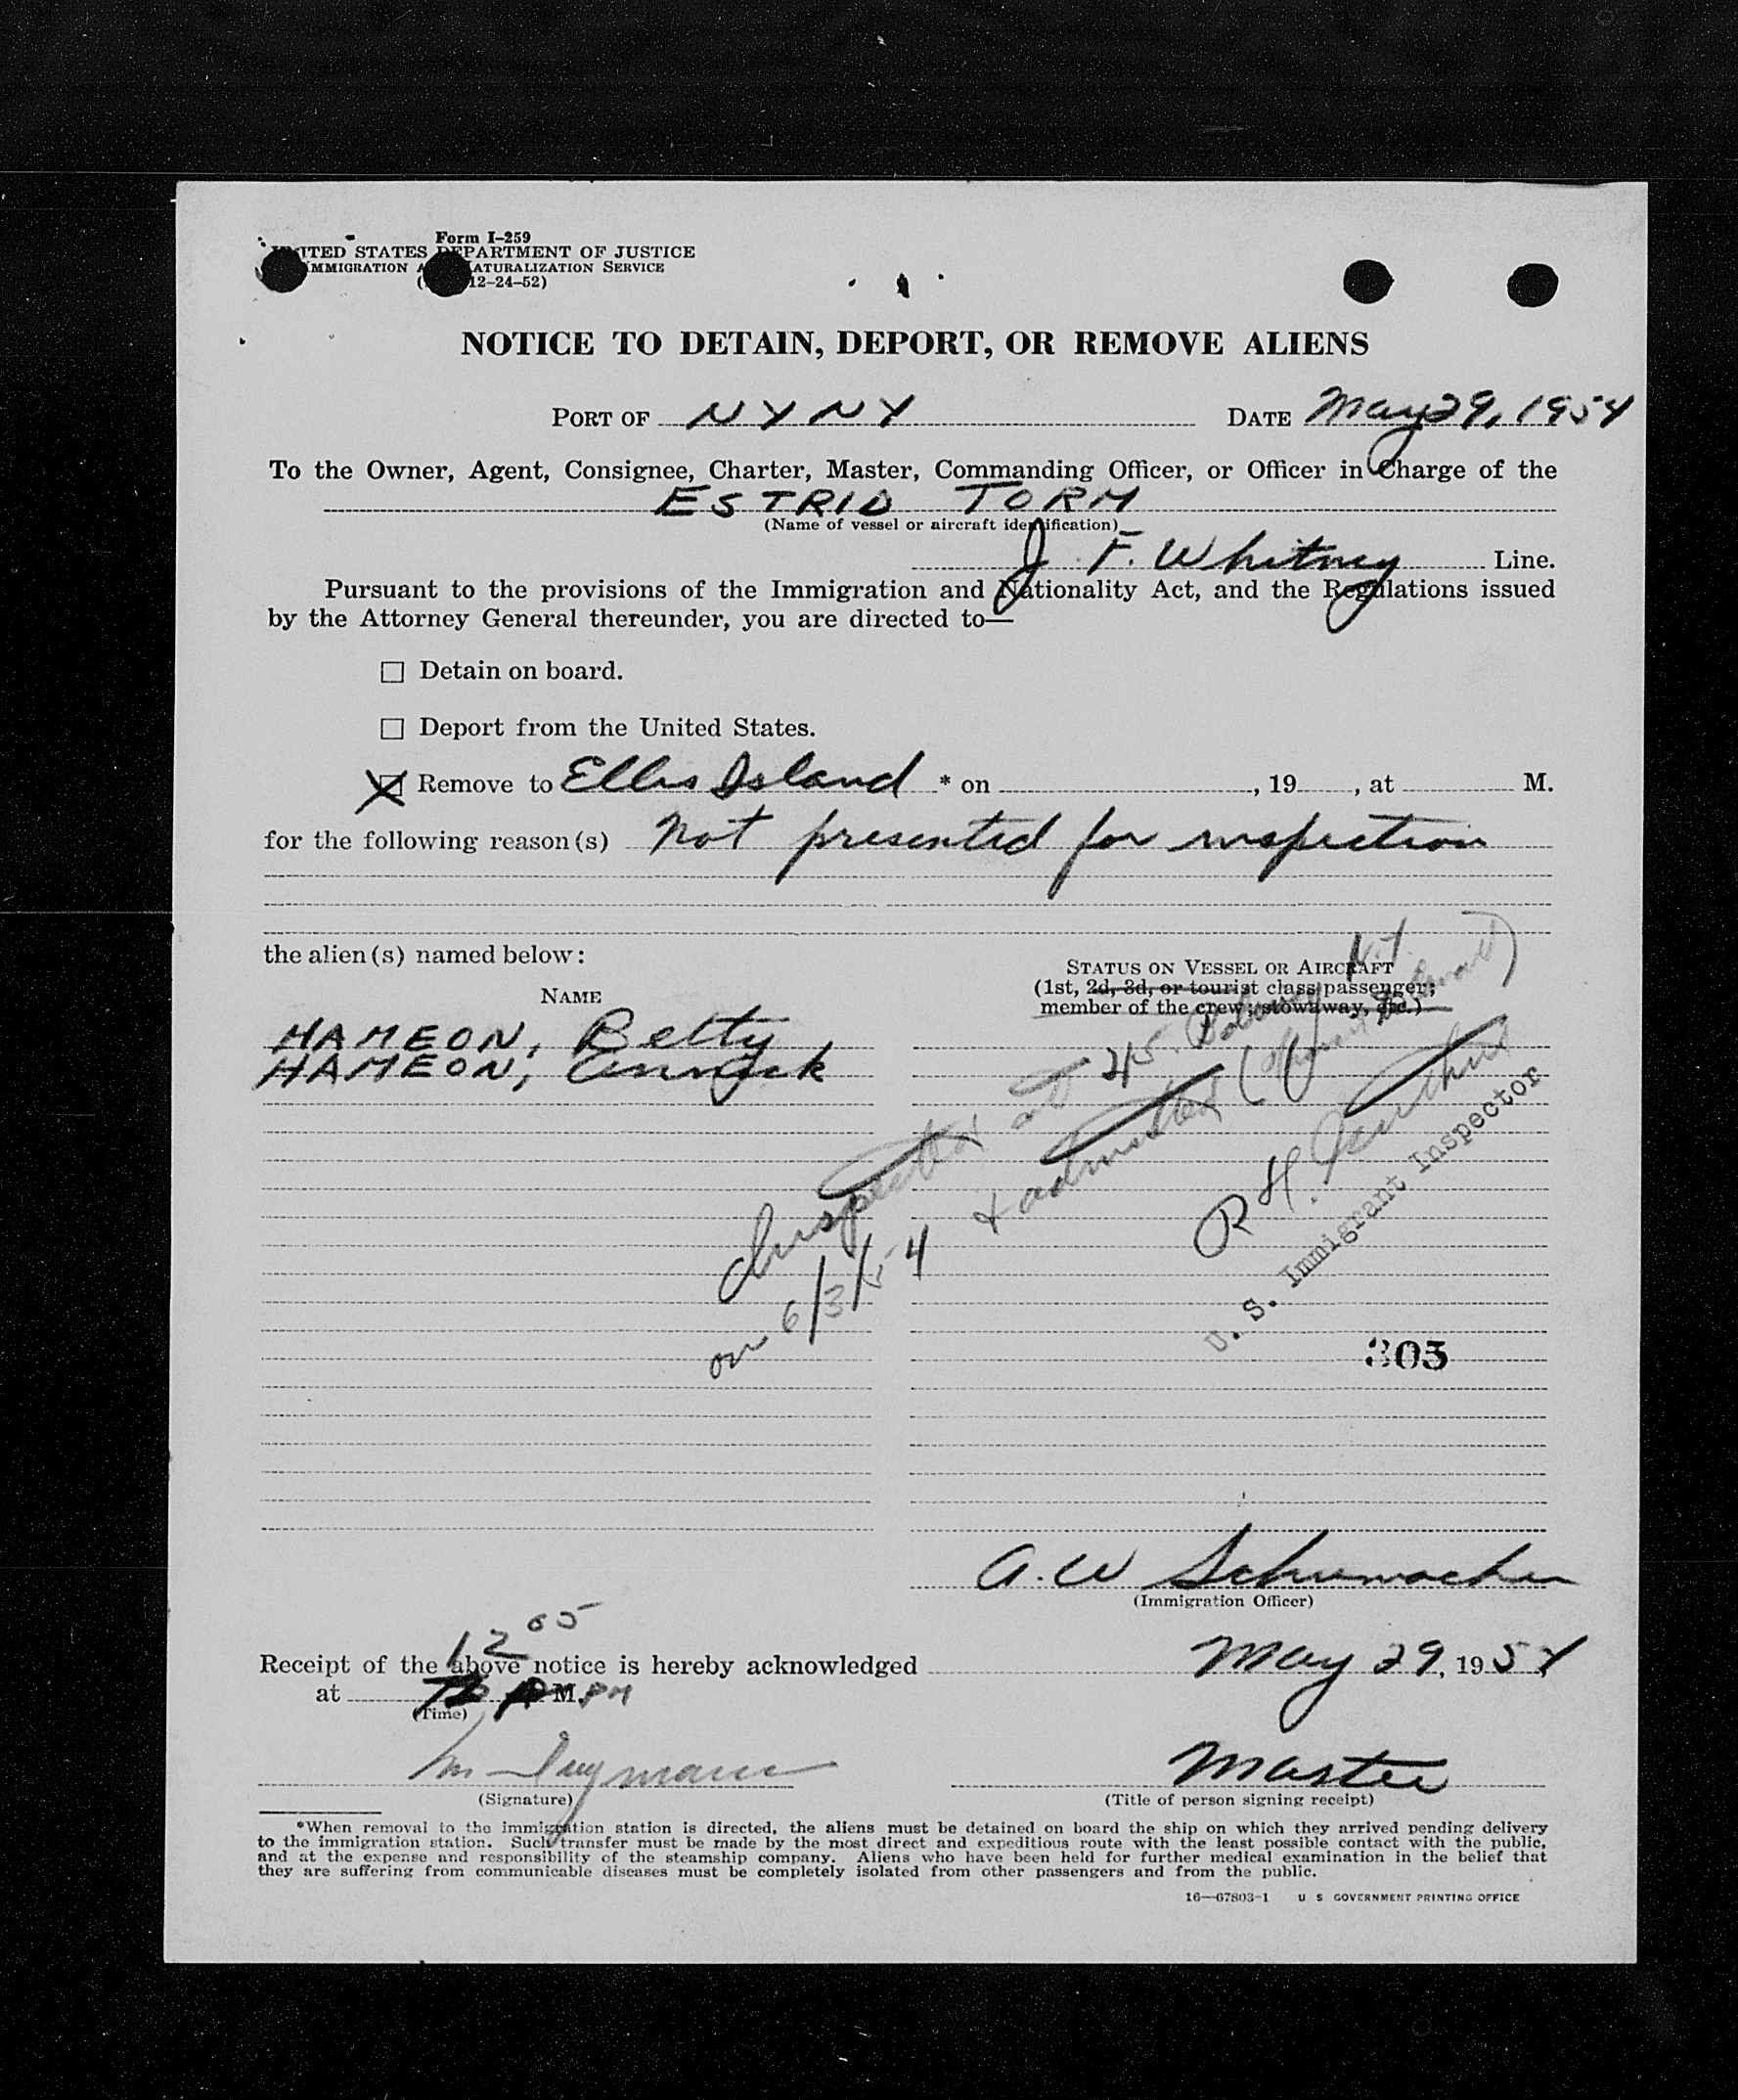 Form I-259
UNITED STATES DEPARTMENT OF JUSTICE
IMMIGRATION NATURALIZATION SERVICE
12-24-52)
NOTICE TO DETAIN, DEPORT, OR REMOVE ALIENS
PORT OF NY NY DATE May 29, 1954
To the Owner, Agent, Consignee, Charter, Master, Commanding Officer, or Officer in Charge of the
ESTRID TORM
(Name of vessel or aircraft identification)
J F. Whitney Line.
Pursuant to the provisions of the Immigration and Nationality Act, and the Regulations issued
by the Attorney General thereunder, you are directed to—
Detain on board.
Deport from the United States.
Remove to Ellis Island * on , 19 , at M.
for the following reason(s) Not presented for inspection
the alien(s) named below:
STATUS ON VESSEL OR AIRCRAFT
(1st, 2d, 3d, or tourist class passenger;
member of the crew; stowaway, etc.)
NAME
HAMEON, Betty
HAMEON, Annick
Inspected at 45
on 6/3/54 & admitted
R H.
U. S. Immigrant Inspector
305
A. W Schumacher
(Immigration Officer)
12 05
Receipt of the above notice is hereby acknowledged May 29, 1954
at M. PM
(Time)
Master
(Signature) (Title of person signing receipt)
*When removal to the immigration station is directed, the aliens must be detained on board the ship on which they arrived pending delivery
to the immigration station. Such transfer must be made by the most direct and expeditious route with the least possible contact with the public,
and at the expense and responsibility of the steamship company. Aliens who have been held for further medical examination in the belief that
they are suffering from communicable diseases must be completely isolated from other passengers and from the public.
16—67803-1 U S GOVERNMENT PRINTING OFFICE